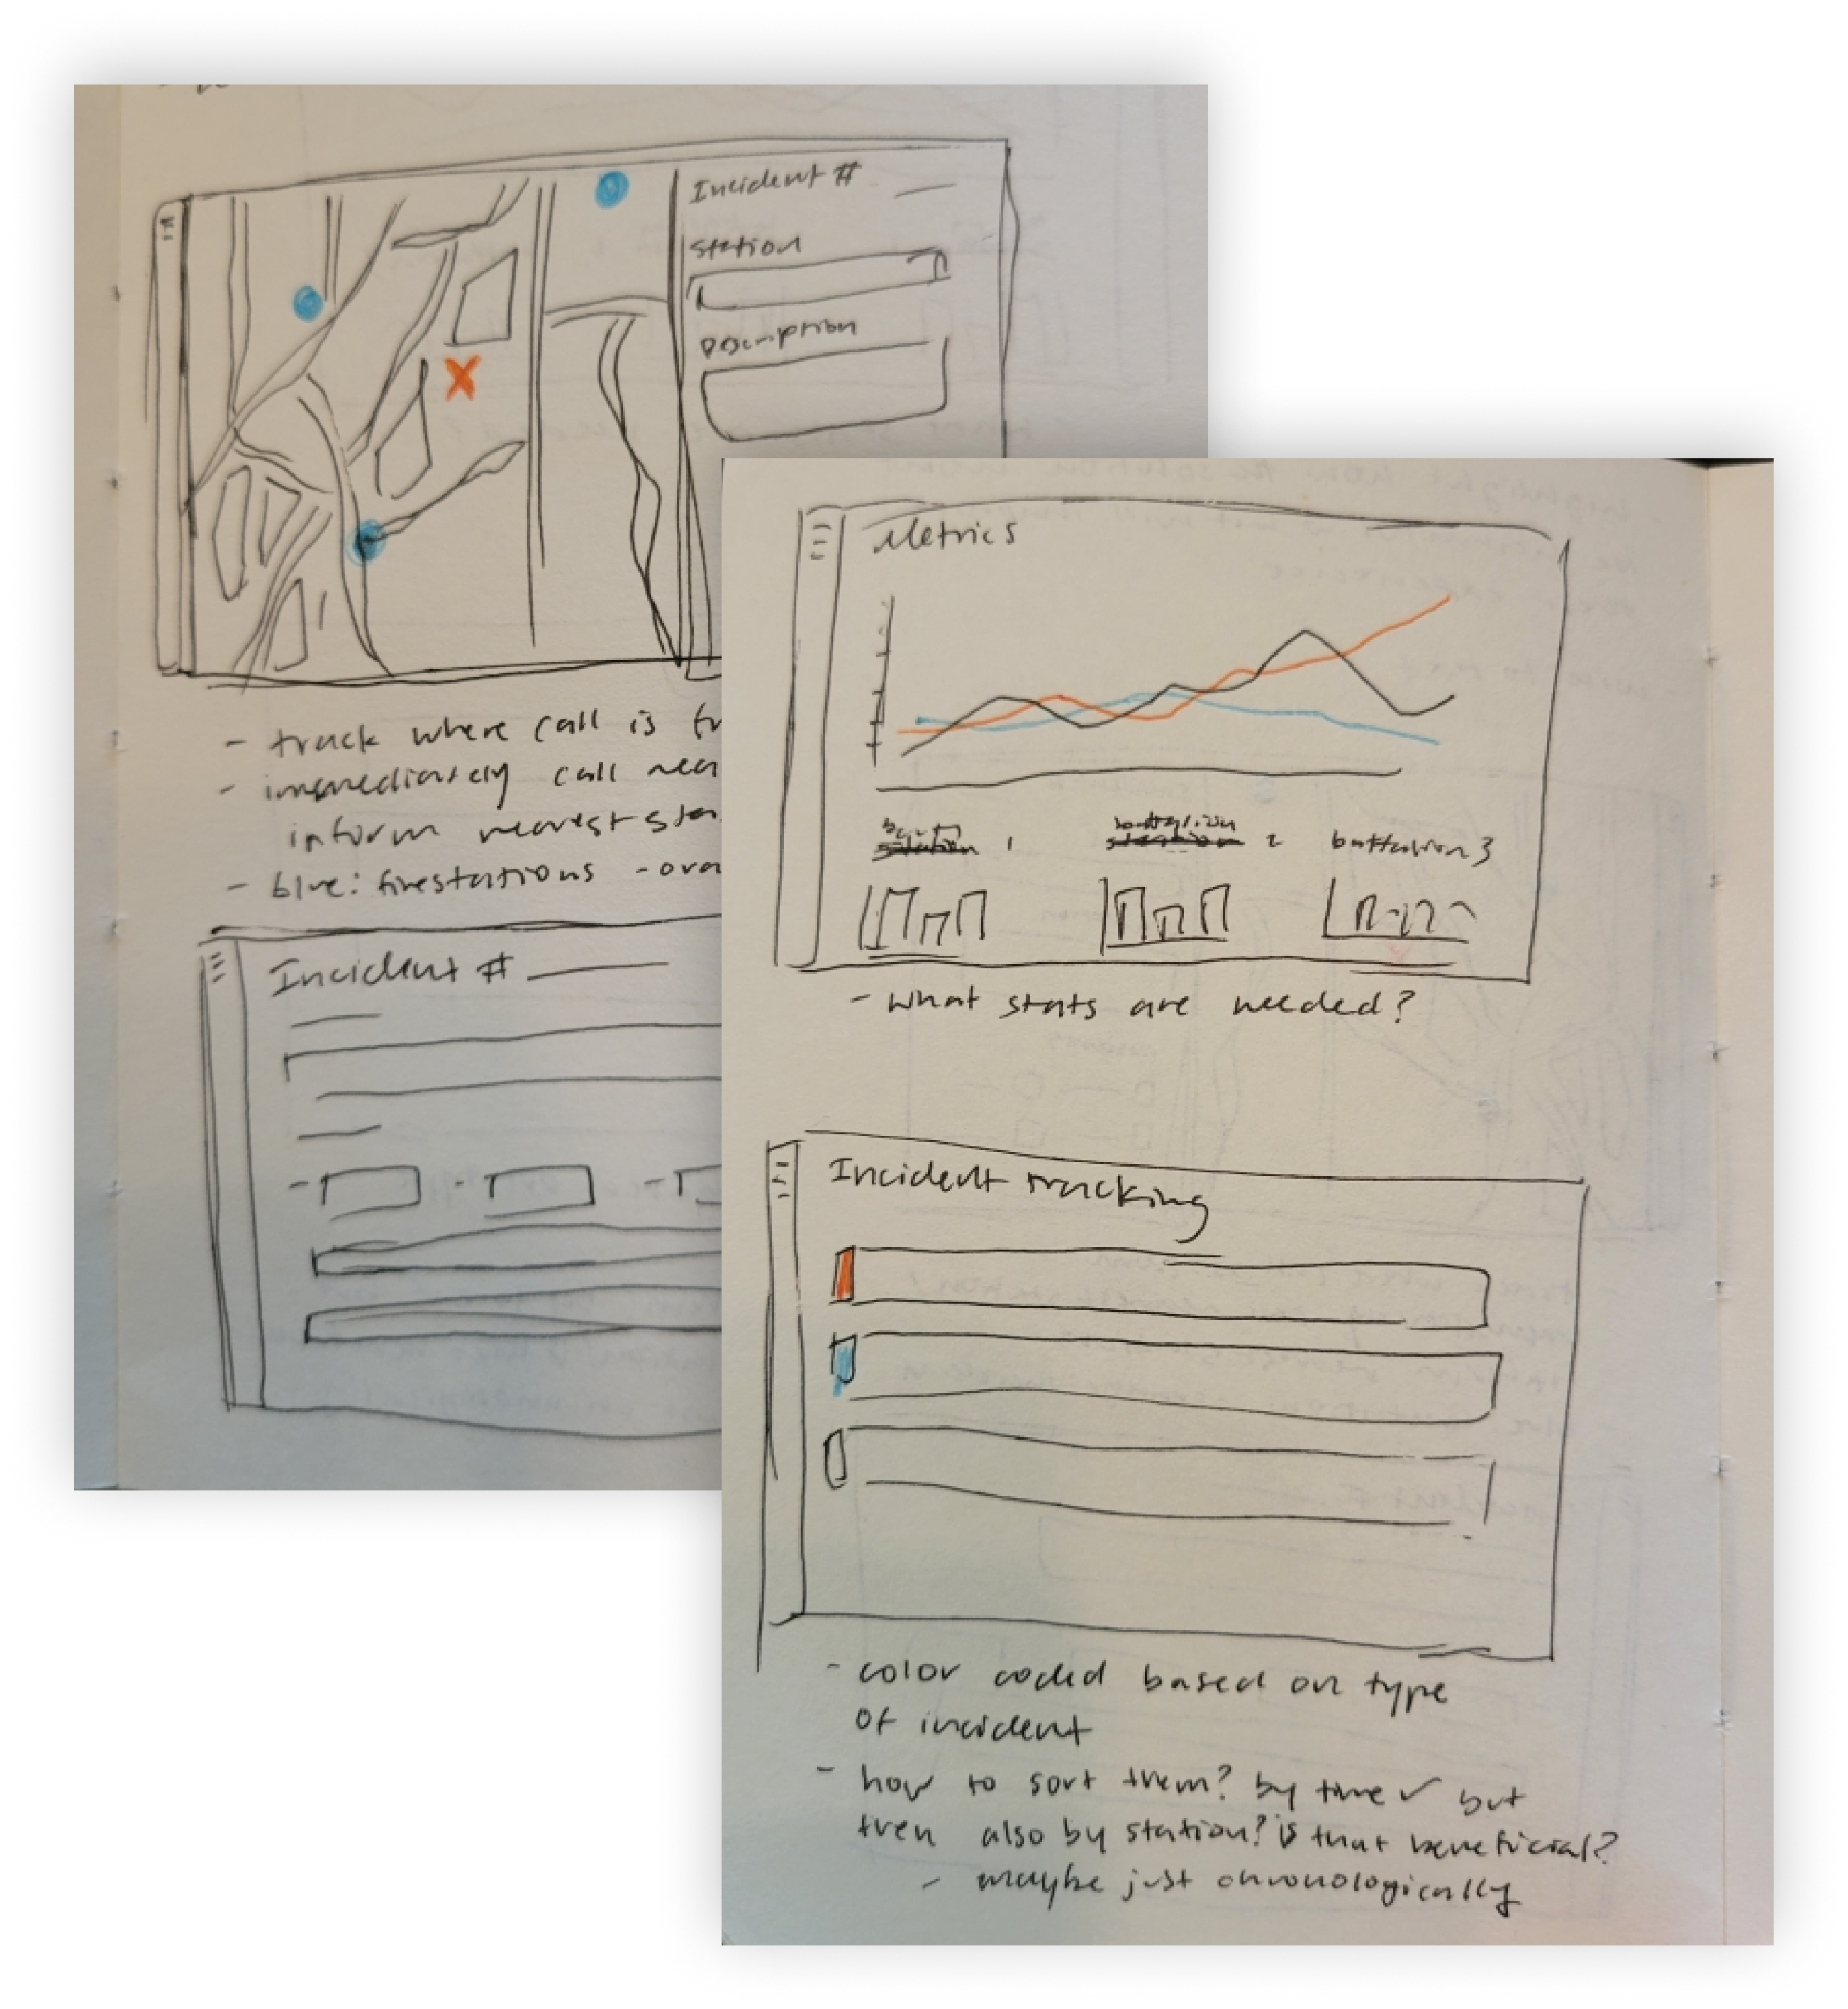 Incident #
Station
Description
- track where call is fr
- immediately call near
inform nearest sta
- blue: firestations - ora
Incident #
Metrics
station 1
battalion station 2
battalion 3
- what stats are needed?
Incident tracking
- color coded based on type
of incident
- how to sort them? by time ✓ but
then also by station? is that beneficial?
- maybe just chronologically